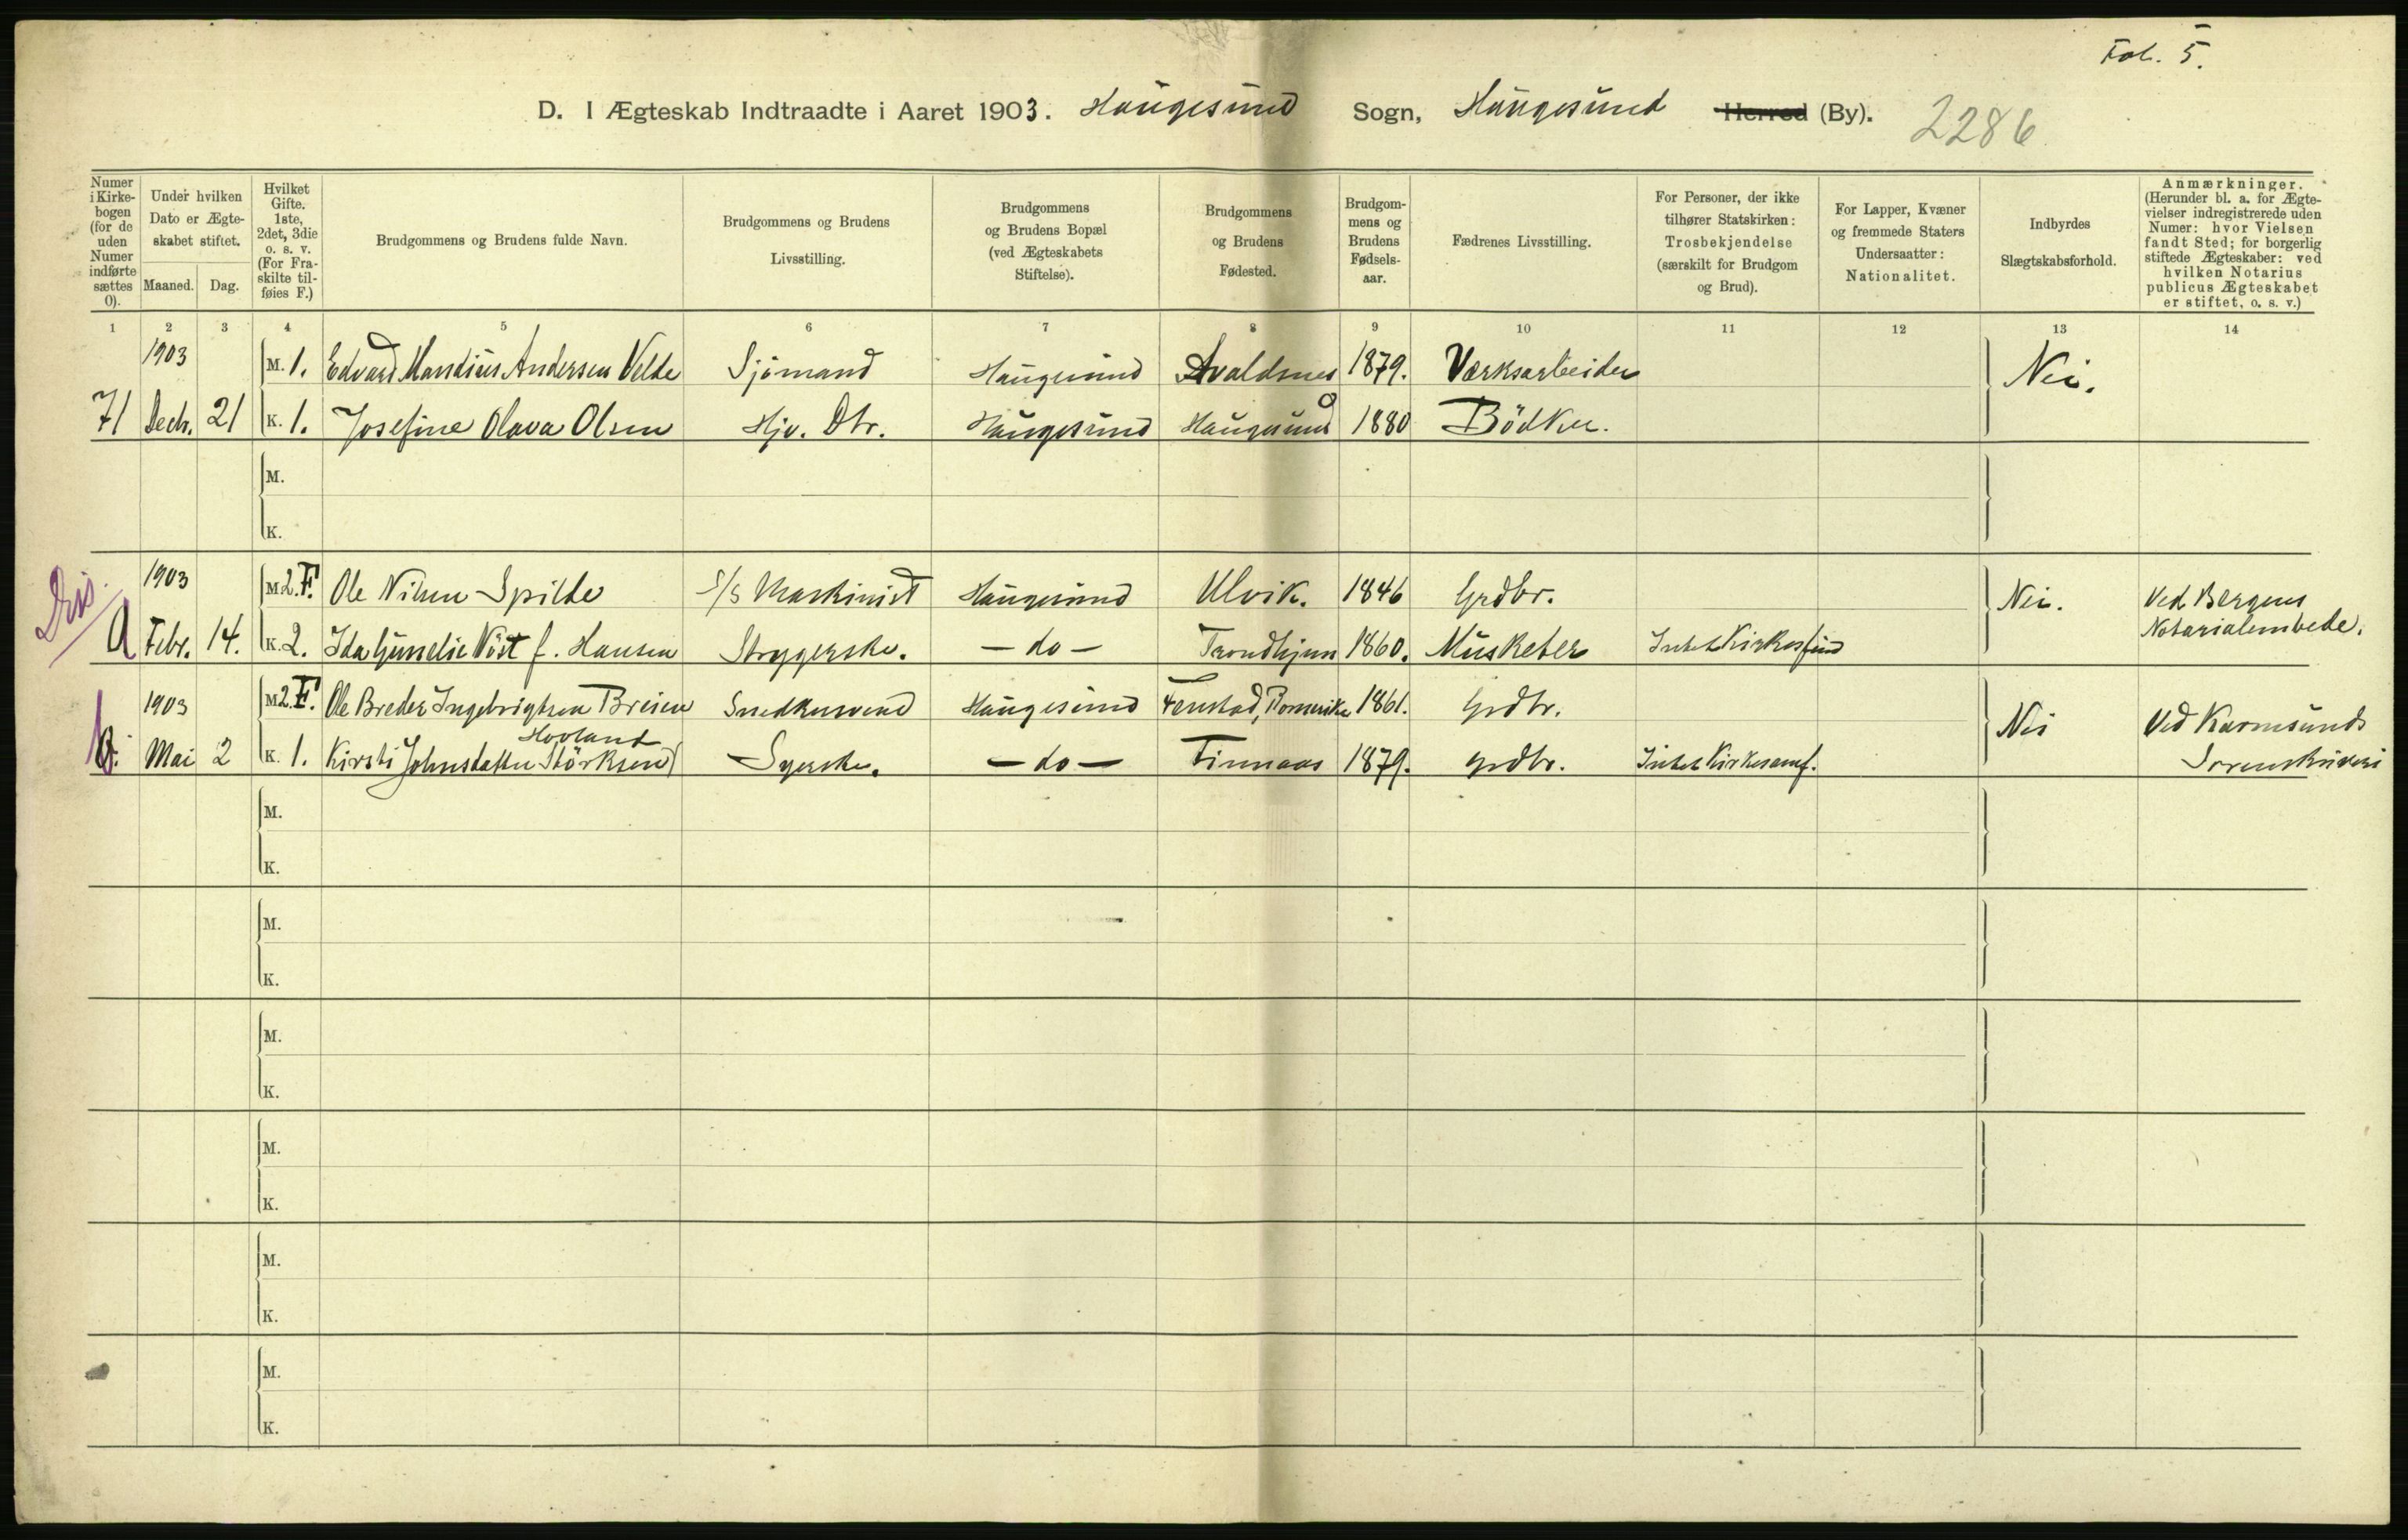 Fol. 5.
D. I Ægteskab Indtraadte i Aaret 1903. Haugesund Sogn, Haugesund Herred (By). 2286
Numer i Kirke-bogen (for de uden Numer indførte sættes 0).
Under hvilken Dato er Ægte-skabet stiftet.
Maaned. Dag.
Hvilket Gifte. 1ste, 2det, 3die o. s. v. (For Fra-skilte til-føies F.)
Brudgommens og Brudens fulde Navn.
Brudgommens og Brudens Livsstilling.
Brudgommens og Brudens Bopæl (ved Ægteskabets Stiftelse).
Brudgommens og Brudens Fødested.
Brudgom-mens og Brudens Fødsels-aar.
Fædrenes Livsstilling.
For Personer, der ikke tilhører Statskirken: Trosbekjendelse (særskilt for Brudgom og Brud).
For Lapper, Kvæner og fremmede Staters Undersaatter: Nationalitet.
Indbyrdes Slægtskabsforhold.
Anmærkninger. (Herunder bl. a. for Ægte-vielser indregistrerede uden Numer: hvor Vielsen fandt Sted; for borgerlig stiftede Ægteskaber: ved hvilken Notarius publicus Ægteskabet er stiftet, o. s. v.)
1 2 3 4 5 6 7 8 9 10 11 12 13 14
1903 M. 1. Edvard Mandius Andersen Velde Sjömand Haugesund Avaldsnes 1879. Værksarbeider Nei.
71 Decb. 21 K. 1. Josefine Olava Olsen Hjv. Dtr. Haugesund Haugesund 1880 Bödker.
M.
K.
Dis.
1903 M. 2. F. Ole Nilsen Spilde S/S Maskinist Haugesund Ulvik. 1846 Grdbr. Nei. Ved Bergens
Notarialembede.
a Febr. 14. K. 2. Ida f. Hansen Strygerske. — do — Trondhjem 1860. Musketer Intet Kirkesamfund
1903 M. 2. F. Ole Breder Ingebrigtsen Breien Snedkersvend Haugesund Fenstad, Romerike 1861. Grdbr. Nei Ved Karmsunds
Hovland
b. Mai 2 K. 1. Kirsti Johnsdatter Störksen Syerske. — do — Finnaas 1879. Grdbr. Intet Kirkesamf. Sorenskriveri
M.
K.
M.
K.
M.
K.
M.
K.
M.
K.
M.
K.